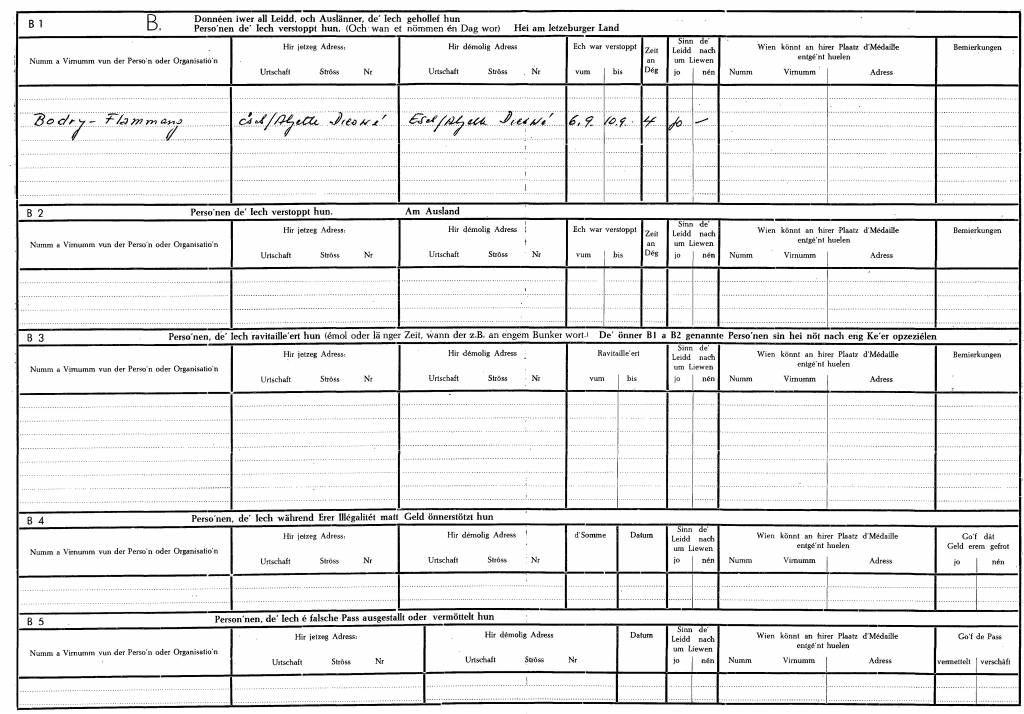 B 1 B. Donnéen iwer all Leidd, och Auslänner, de' Iech gehollef hun
Perso'nen de' Iech verstoppt hun. (Och wan et nömmen én Dag wor) Hei am letzeburger Land
Numm a Virnumm vun der Perso'n oder Organisatio'n
Hir jetzeg Adress:
Urtschaft Ströss Nr
Hir démolig Adress
Urtschaft Ströss Nr
Ech war verstoppt
vum bis
Zeit
an
Dég
Sinn de'
Leidd nach
um Liewen
jo nén
Wien könnt an hirer Plaatz d'Médaille
entgé'nt huelen
Numm Virnumm Adress
Bemierkungen
Bodry - Flammang Esch/Alzette Esch/Alzette 6.9. 10.9. 4 jo —
B 2 Perso'nen de' Iech verstoppt hun. Am Ausland
Numm a Virnumm vun der Perso'n oder Organisatio'n
Hir jetzeg Adress:
Urtschaft Ströss Nr
Hir démolig Adress
Urtschaft Ströss Nr
Ech war verstoppt
vum bis
Zeit
an
Dég
Sinn de'
Leidd nach
um Liewen
jo nén
Wien könnt an hirer Plaatz d'Médaille
entgé'nt huelen
Numm Virnumm Adress
Bemierkungen
B 3 Perso'nen, de' Iech ravitaille'ert hun (émol oder länger Zeit, wann der z.B. an engem Bunker wort.) De' önner B1 a B2 genannte Perso'nen sin hei nöt nach eng Ke'er opzeziélen
Numm a Virnumm vun der Perso'n oder Organisatio'n
Hir jetzeg Adress:
Urtschaft Ströss Nr
Hir démolig Adress
Urtschaft Ströss Nr
Ravitaille'ert
vum bis
Sinn de'
Leidd nach
um Liewen
jo nén
Wien könnt an hirer Plaatz d'Médaille
entgé'nt huelen
Numm Virnumm Adress
Bemierkungen
B 4 Perso'nen, de' Iech während Erer Illégalitét matt Geld önnerstötzt hun
Numm a Virnumm vun der Perso'n oder Organisatio'n
Hir jetzeg Adress:
Urtschaft Ströss Nr
Hir démolig Adress
Urtschaft Ströss Nr
d'Somme
Datum
Sinn de'
Leidd nach
um Liewen
jo nén
Wien könnt an hirer Plaatz d'Médaille
entgé'nt huelen
Numm Virnumm Adress
Go'f dát
Geld erem gefrot
jo nén
B 5 Person'nen, de' Iech é falsche Pass ausgestallt oder vermöttelt hun
Numm a Virnumm vun der Perso'n oder Organisatio'n
Hir jetzeg Adress:
Urtschaft Ströss Nr
Hir démolig Adress
Urtschaft Ströss Nr
Datum
Sinn de'
Leidd nach
um Liewen
jo nén
Wien könnt an hirer Plaatz d'Médaille
entgé'nt huelen
Numm Virnumm Adress
Go'f de Pass
vermettelt verschâft